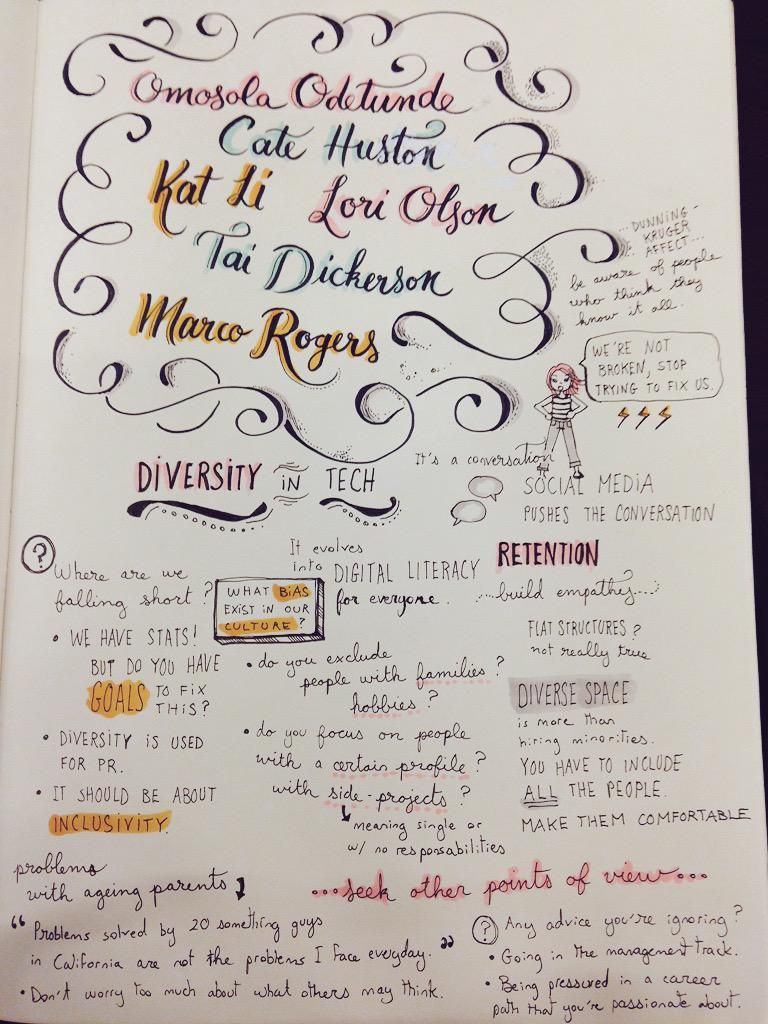 Omosola Odetunde
Cate Huston
Kat Li Lori Olson
Tai Dickerson
Marco Rogers
... DUNNING -
KRUGER
AFFECT...
be aware of people
who think they
know it all.
WE'RE NOT
BROKEN, STOP
TRYING TO FIX US.
DIVERSITY IN TECH
It's a conversation
SOCIAL MEDIA
PUSHES THE CONVERSATION
? Where are we
falling short?
• WE HAVE STATS!
BUT DO YOU HAVE
GOALS TO FIX
THIS?
• DIVERSITY IS USED
FOR PR.
• IT SHOULD BE ABOUT
INCLUSIVITY.
It evolves
into DIGITAL LITERACY
for everyone.
WHAT BIAS
EXIST IN OUR
CULTURE?
• do you exclude
people with families?
hobbies?
• do you focus on people
with a certain profile?
with side-projects?
meaning single or
w/ no responsabilities
RETENTION
...build empathy...
FLAT STRUCTURES?
not really true
DIVERSE SPACE
is more than
hiring minorities.
YOU HAVE TO INCLUDE
ALL THE PEOPLE.
MAKE THEM COMFORTABLE
problems
with ageing parents
...seek other points of view...
"Problems solved by 20 something guys
in California are not the problems I face everyday."
• Don't worry too much about what others may think.
? Any advice you're ignoring?
• Going in the management track.
• Being pressured in a career
path that you're passionate about.